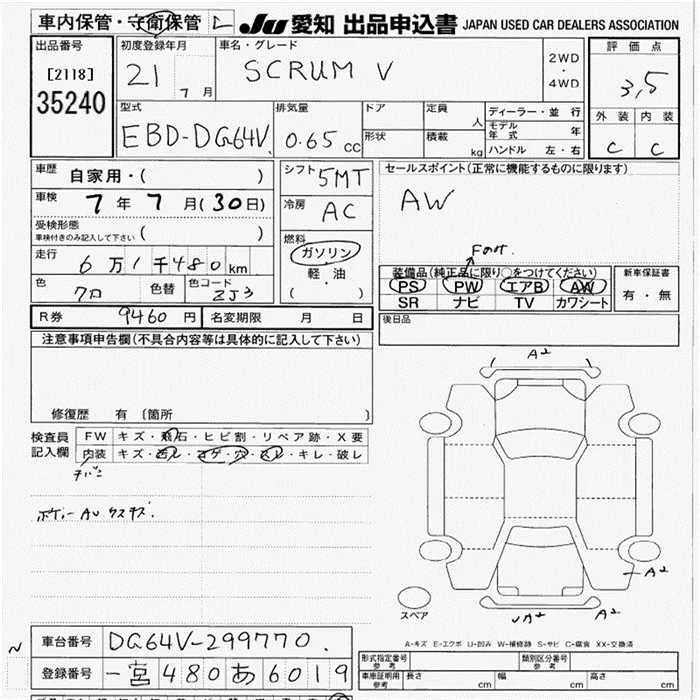 車内保管・守衛保管
JU 愛知 出品申込書 JAPAN USED CAR DEALERS ASSOCIATION
出品番号
[2118]
35240
初度登録年月
21 7 月
車名・グレード
SCRUM V
2WD
・
4WD
評価点
3,5
外装 内装
C C
型式
EBD-DG64V
排気量
0.65 CC
ドア
形状
定員 人
積載 kg
ディーラー・並行
モデル年式 年
ハンドル 左・右
車歴
自家用・( )
車検
7 年 7 月(30日)
受検形態
車検付きのみ記入して下さい ( )
走行
6 万 1 千 480 km
色
クロ
色替
色コード
ZJ3
シフト
5MT
冷房
AC
燃料
ガソリン
軽・油
( )
セールスポイント(正常に機能するものに限ります)
AW
Fのみ.
装備品(純正品に限り○をつけてください)
PS PW エアB AW
SR ナビ TV カワシート
新車保証書
有・無
R券 9460 円
名変期限 月 日
後日品
注意事項申告欄(不具合内容等は具体的に記入して下さい)
修復歴 有 〔箇所 〕
検査員
記入欄
FW キズ・飛石・ヒビ割・リペア跡・X要
内装 キズ・汚レ・コゲ・穴・スレ・キレ・破レ
A2
A2
A2
スペア
A-キズ E-エクボ U-凹み W-補修跡 S-サビ C-腐食 XX-交換済
車台番号
DG64V-299770.
登録番号
一宮 480 あ 6019
形式指定番号
参考
類別区分番号
参考
車庫証明用
参考
長さ cm
幅 cm
高さ cm